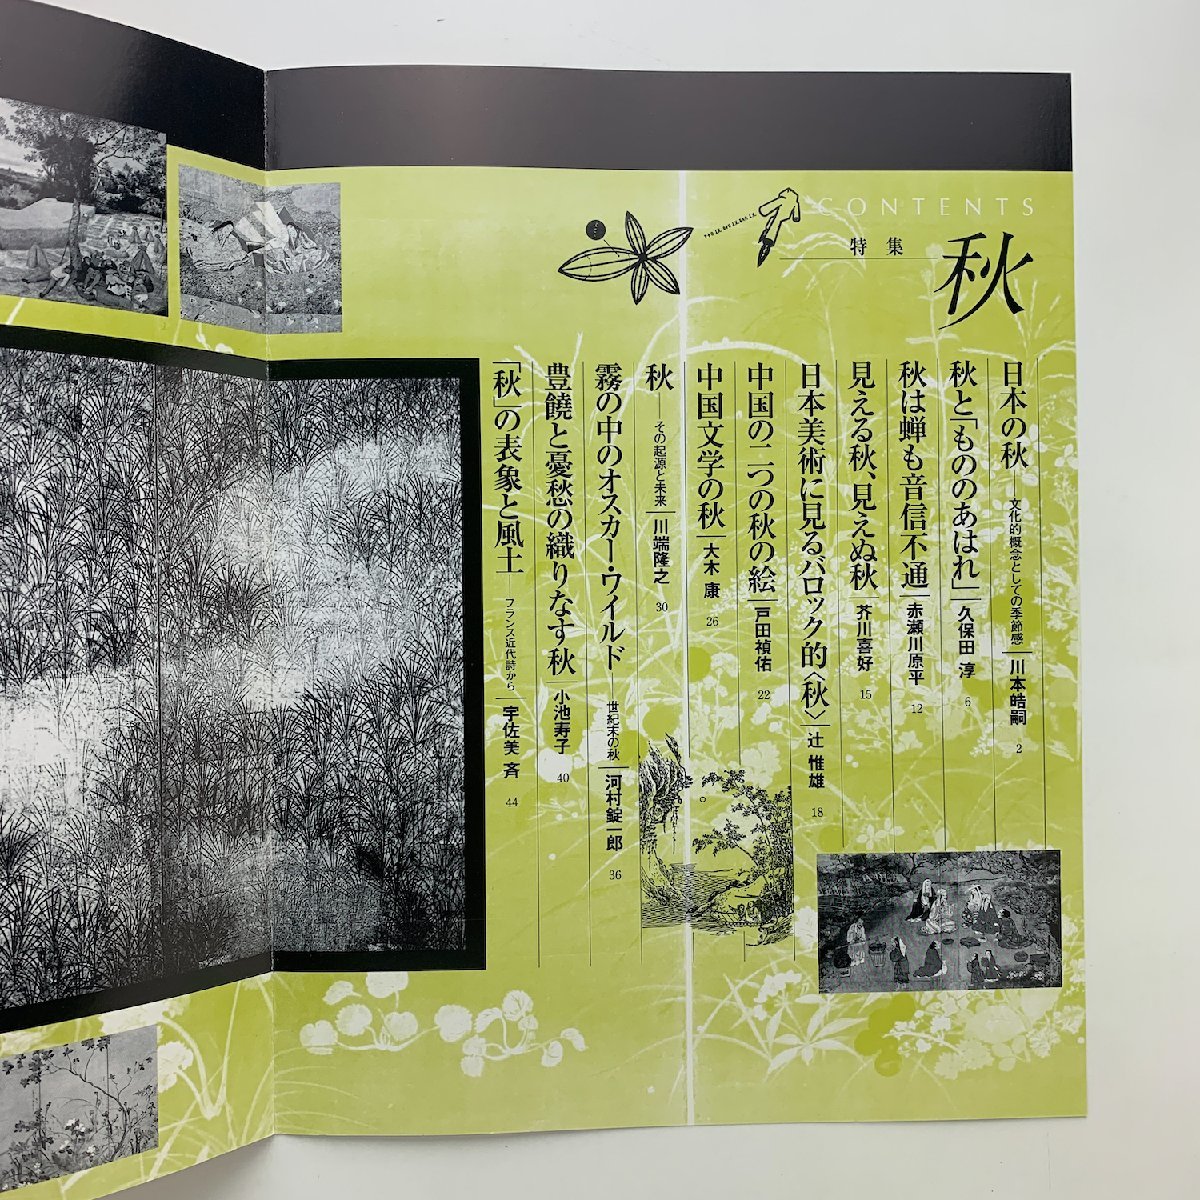 CONTENTS
特集
秋
日本の秋──文化的概念としての季節感 川本皓嗣 2
秋と「もののあはれ」 久保田 淳 6
秋は蝉も音信不通 赤瀬川原平 12
見える秋、見えぬ秋 芥川喜好 15
日本美術に見るバロック的〈秋〉 辻 惟雄 18
中国の二つの秋の絵 戸田禎佑 22
中国文学の秋 大木 康 26
秋──その起源と未来 川端隆之 30
霧の中のオスカー・ワイルド──世紀末の秋 河村錠一郎 36
豊饒と憂愁の織りなす秋 小池寿子 40
「秋」の表象と風土──フランス近代詩から 宇佐美 斉 44